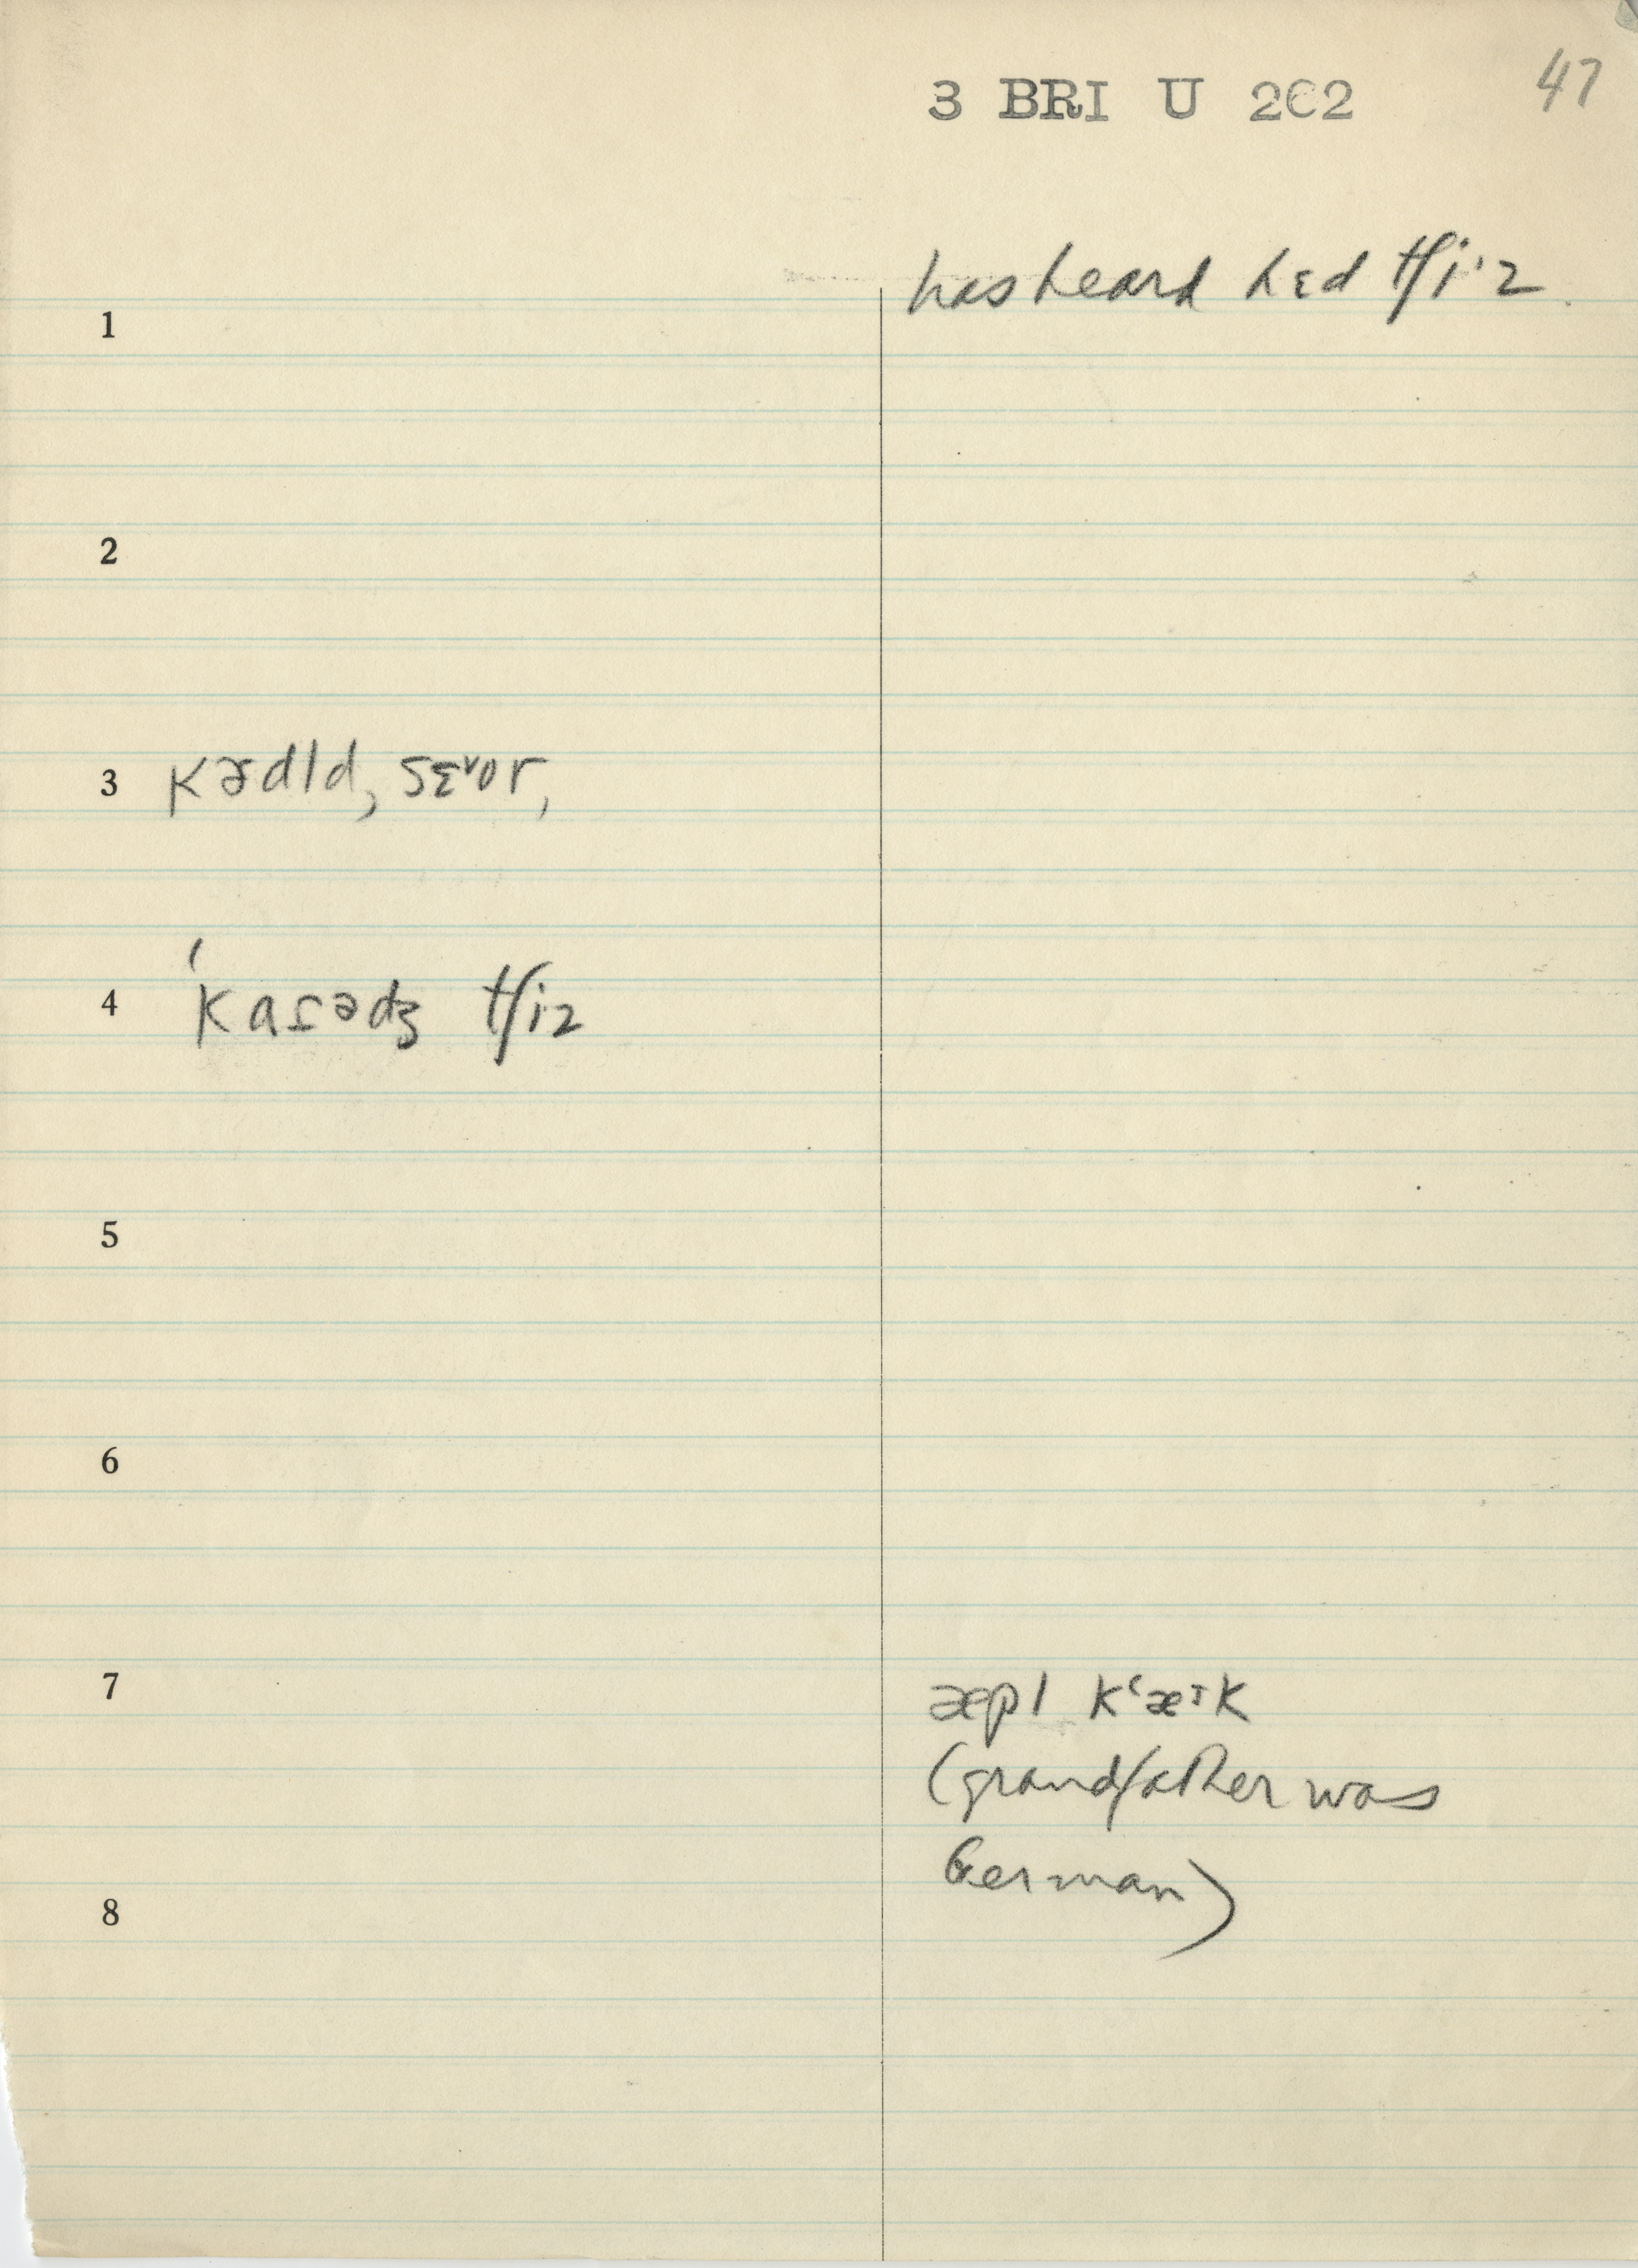 3 BRI U 202 47
has heard hɛd tʃi·z
1
2
3 kɚdld, sɛᵛor,
4 ˈkaɾədʒ tʃiz
5
6
7 æpl kʻæᶦk
(grandfather was
German)
8